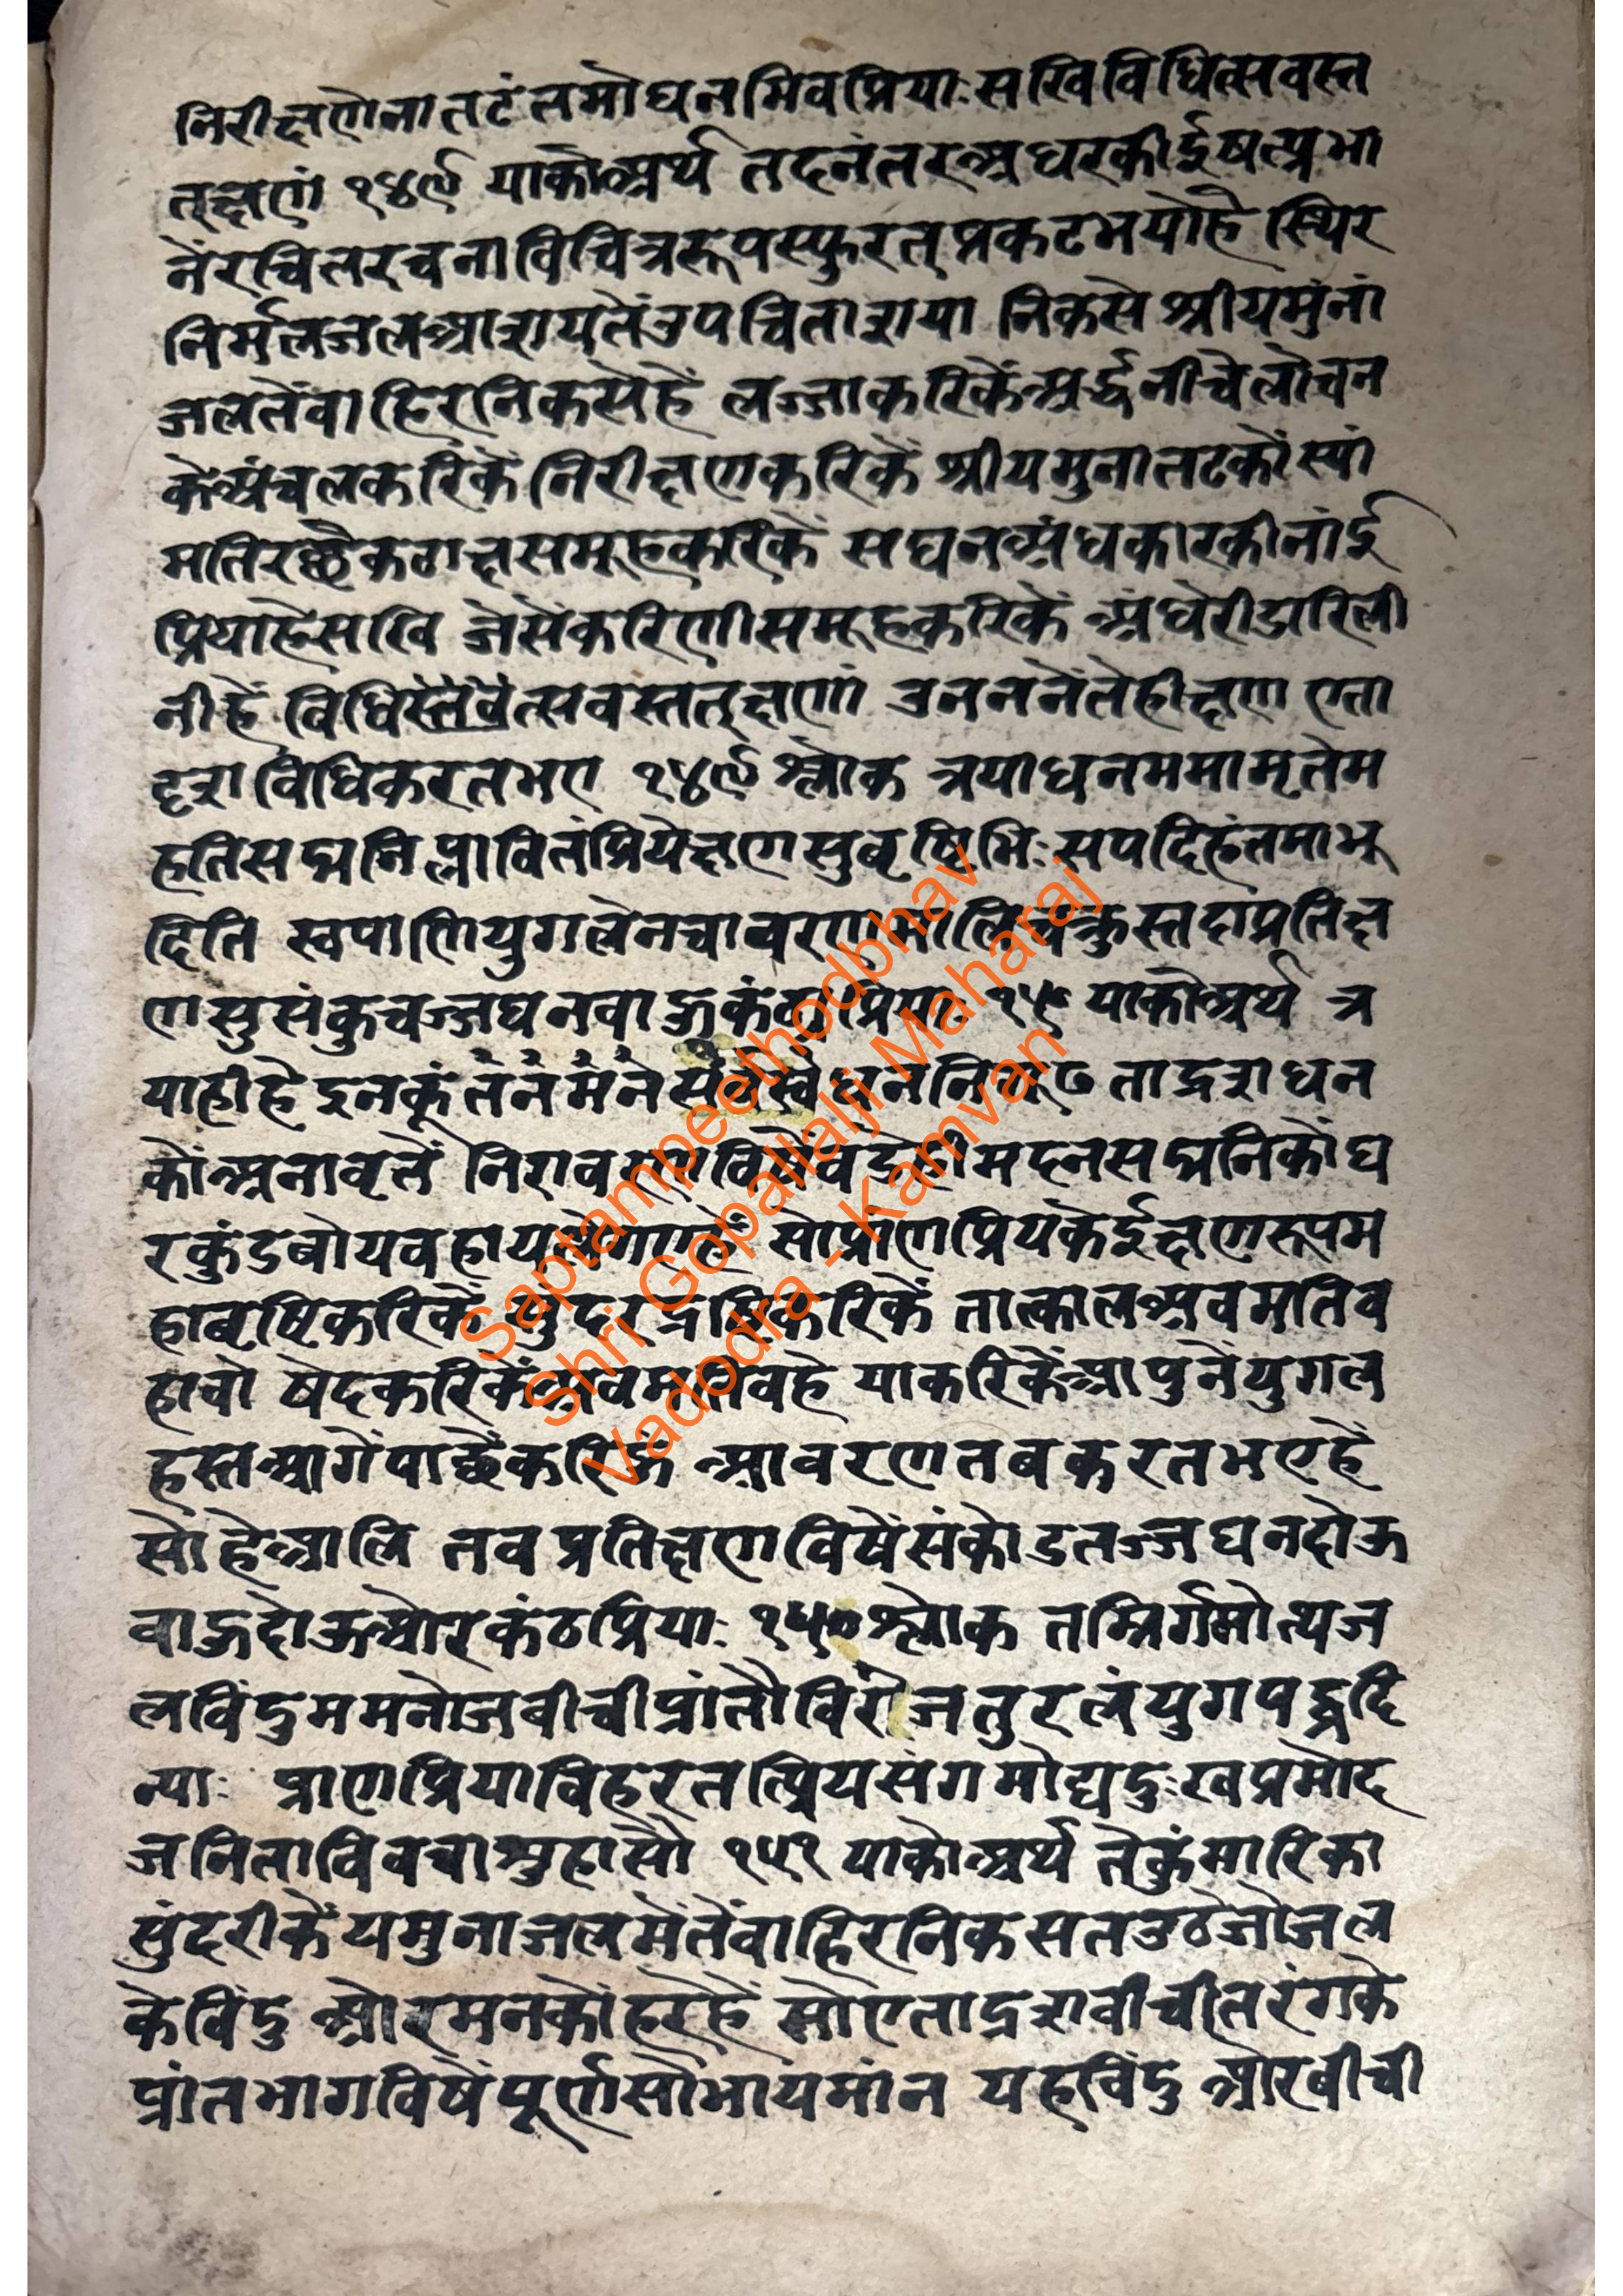 निरीक्षणेनातटंतमोघनमिवप्रियाःसखिविधित्सवस्त
त्क्षणं १४९ याकोअर्थ तदनंतरअधरकीईषत्प्रभा
नेंरचितरचनाविचित्ररूपस्फुरत्प्रकटभयोहै स्थिर
निर्मलजलआशयतेंउपचिताशया निकसे श्रीयमुंनां
जलतेंवाहिरनिकसेहें लज्जाकरिकेंअर्द्धनीचेलोचन
केअंचलकरिकें निरीक्षणकरिकें श्रीयमुनातटकोंस्यां
मतिरछेकटाक्षसमूहकरिकें सघनअंधकारकीनांई
प्रियाहेसखि जेसेंकरिणीसमूहकरिकें अंधेरीडारिली
नीहें विधित्सवस्ततत्क्षणं उननेंतेहीक्षण एता
दृशविधिकरतभए १४९ श्लोक त्रयाघनममामृतेम
हतिसद्मनिप्लावितंप्रियेक्षणसुवृष्टिभिःसपदिहंतमाभू
दिति स्वपाणियुगलेनचावरणमालिचक्रुस्तदाप्रतिक्ष
णसुसंकुचज्जघनवाऊकंठाप्रियाः १५० याकोअर्थ त्र
याहीहै इनकूंतनमनसर्वस्वधननिगूढ तादृशधन
कोंअनावृतें निरावरणविषेंवडेहीमदनसद्मनिकोंघ
रकुंडबोयवहायलेगएहें सोप्राणप्रियकेईक्षणरूपम
हावृष्टिकरिकें सुंदरद्रष्टिकरिकें तात्कालअवमतिव
हावो षेदकरिकेंअवमतिवहे याकरिकेंआपुनेंयुगल
हस्तआगेंपाछेंकरिकें आवरणतबकरतभएहें
सोहेआलि तवप्रतिक्षणविषेंसंकोडतज्जघनदोऊ
वाऊदोऊओरकंठप्रियाः १५० श्लोक तन्निर्गमोत्थज
लविंदुममनोजवीचीप्रांतौविरेजतुरलंयुगपद्धदि
न्याः प्राणप्रियाविहरतत्प्रियसंगमोद्यदुःखप्रमोद
जनिताविवचाश्रुहासौ १५१ याकोअर्थ तेकुंमारिका
सुंदरीकेंयमुनाजलमेंतेंवाहिरनिकसतउठेजोजल
केविंदु ओरमनकोंहरेहें सोएताद्रशवीचीतरंगके
प्रांतभागविषेंपूर्णसोभायमांन यहविंदु ओरवीची
Saptampeethodbhav
Shri Gopallalji Maharaj
Vadodra - Kamvan